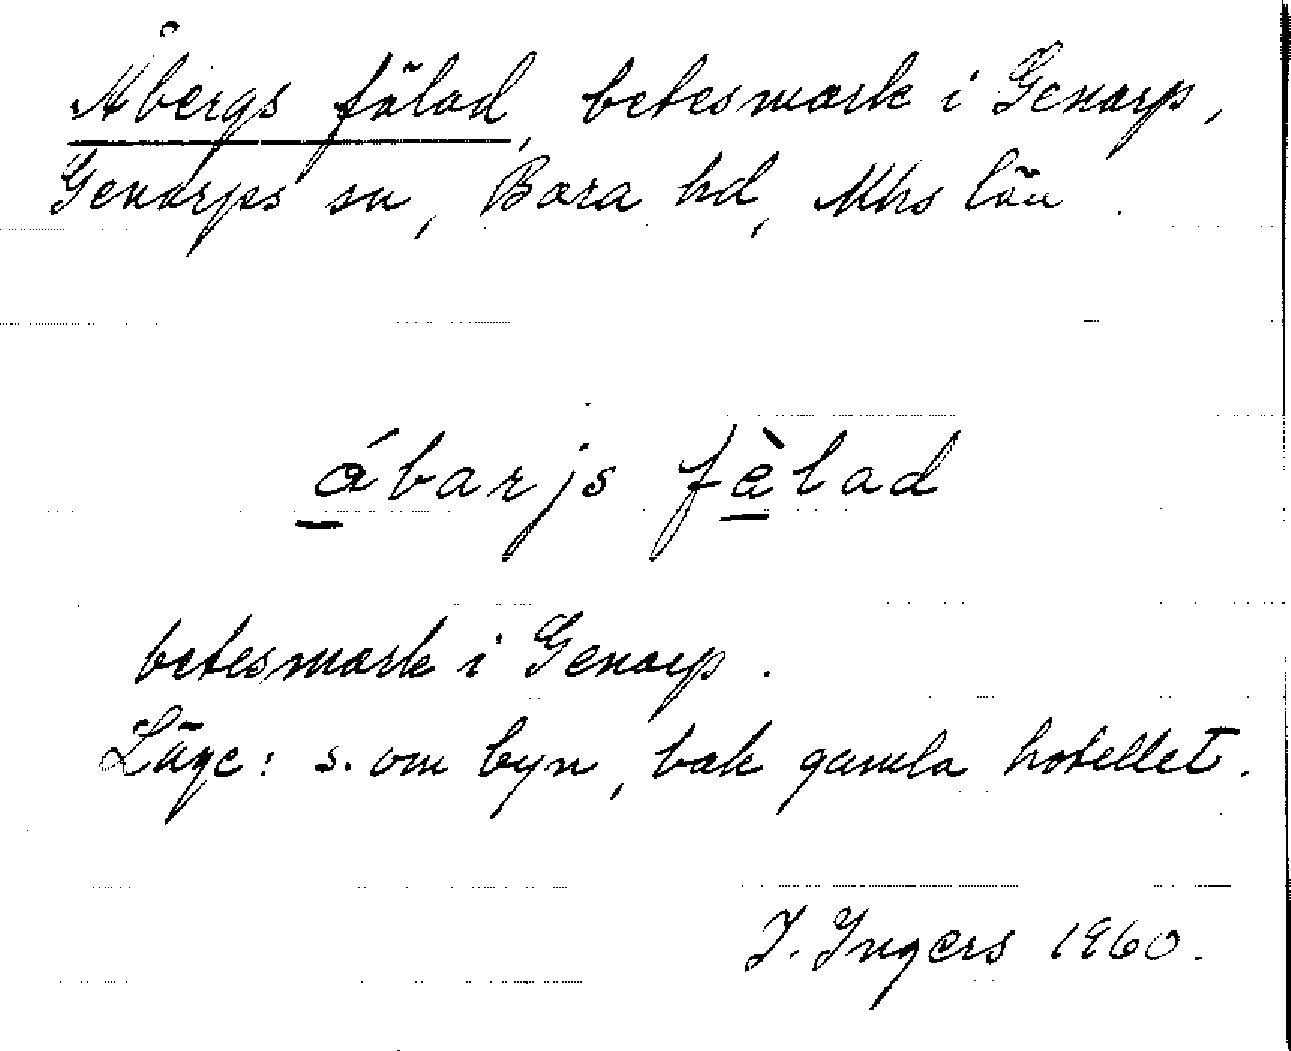 Åbergs fälad, betesmark i Genarp,
Genarps sn, Bara hd, Mhs län.
ábarjs fàlad
betesmark i Genarp.
Läge: s. om byn, bak gamla hotellet.
I. Ingers 1960.